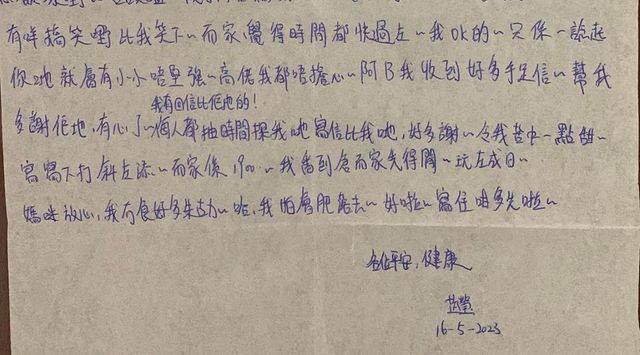 有咩搞笑嘢比我笑下~ 而家覺得時間都快過左~ 我OK的~ 只係一談起
你哋就會有小小唔堅強~ 高佬我都唔擔心~ 阿B我收到好多手足信~ 幫我
我有回信比佢地的!
多謝佢地, 有心了~ 個人都抽時間探我哋寫信比我哋, 好多謝~ 令我苦中一點甜~
寫寫下打斜左添~ 而家係 1900 ~ 我番到倉而家先得閒~ 玩左成日~
媽咪放心, 我有食好多朱古力~ 哈, 我怕會肥~ 好啦~ 寫住咁多先啦~
各位平安, 健康
16-5-2023